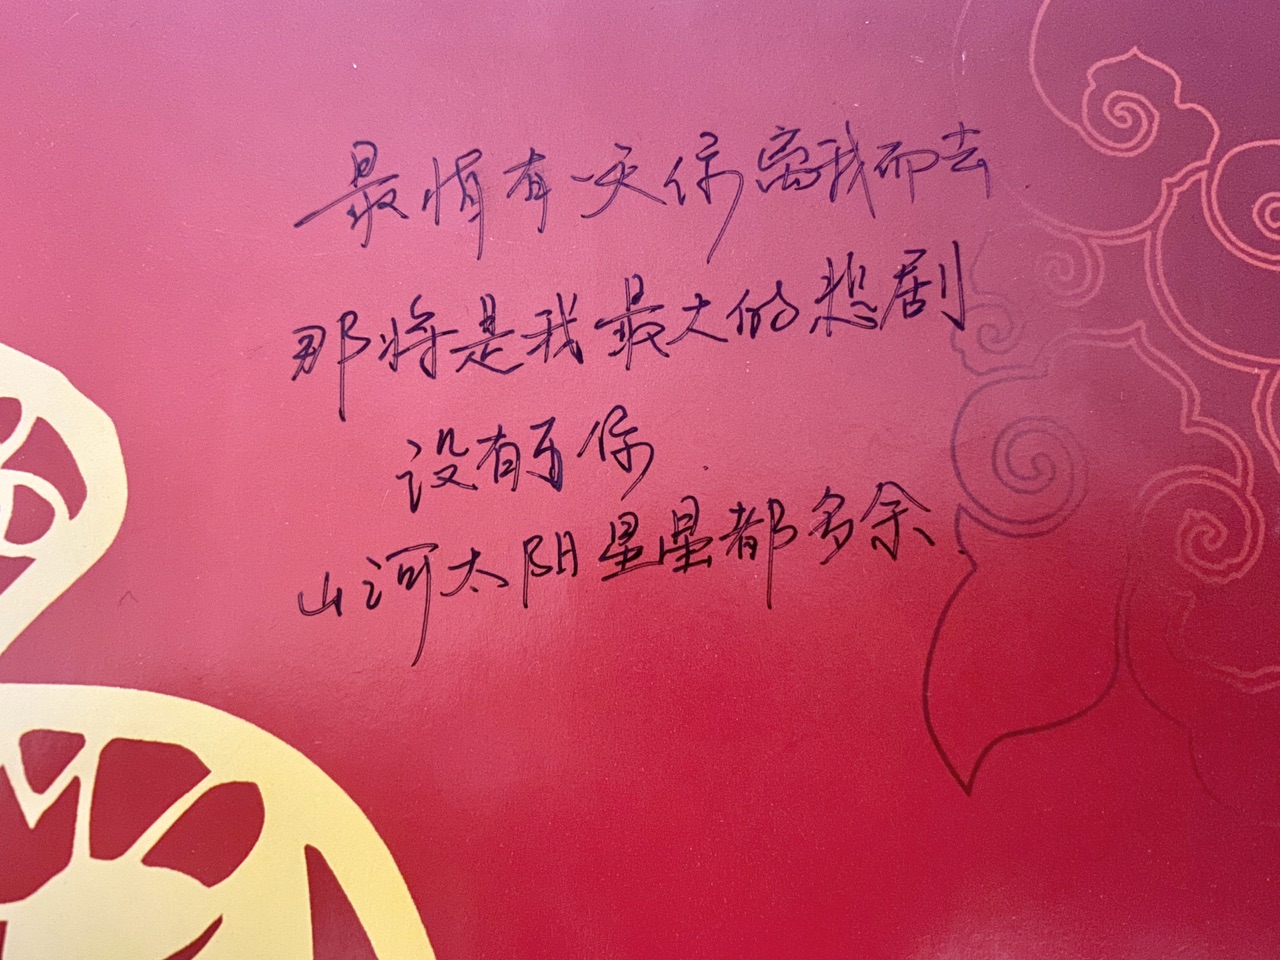 最惧有一天你离我而去
那将是我最大的悲剧
没有了你
山河太阳星星都多余